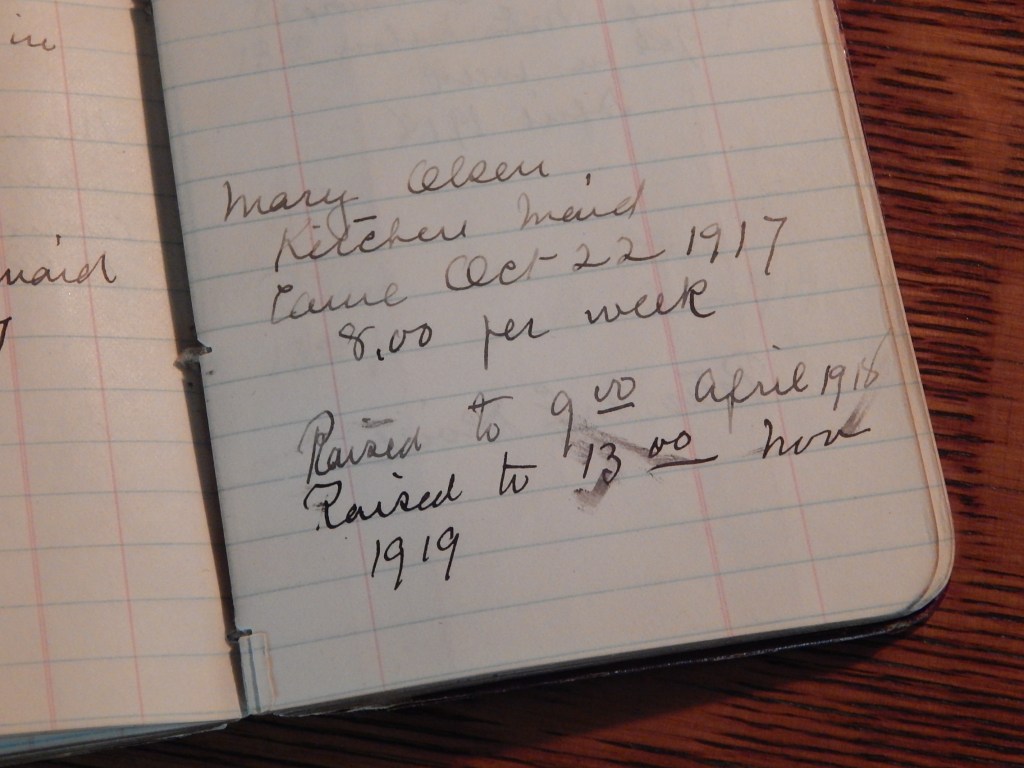 in
maid
Mary Olsen
Kitchen Maid
Came Oct 22 1917
8.00 per week
Raised to 9 00 April 1918
Raised to 13 00 Nov
1919